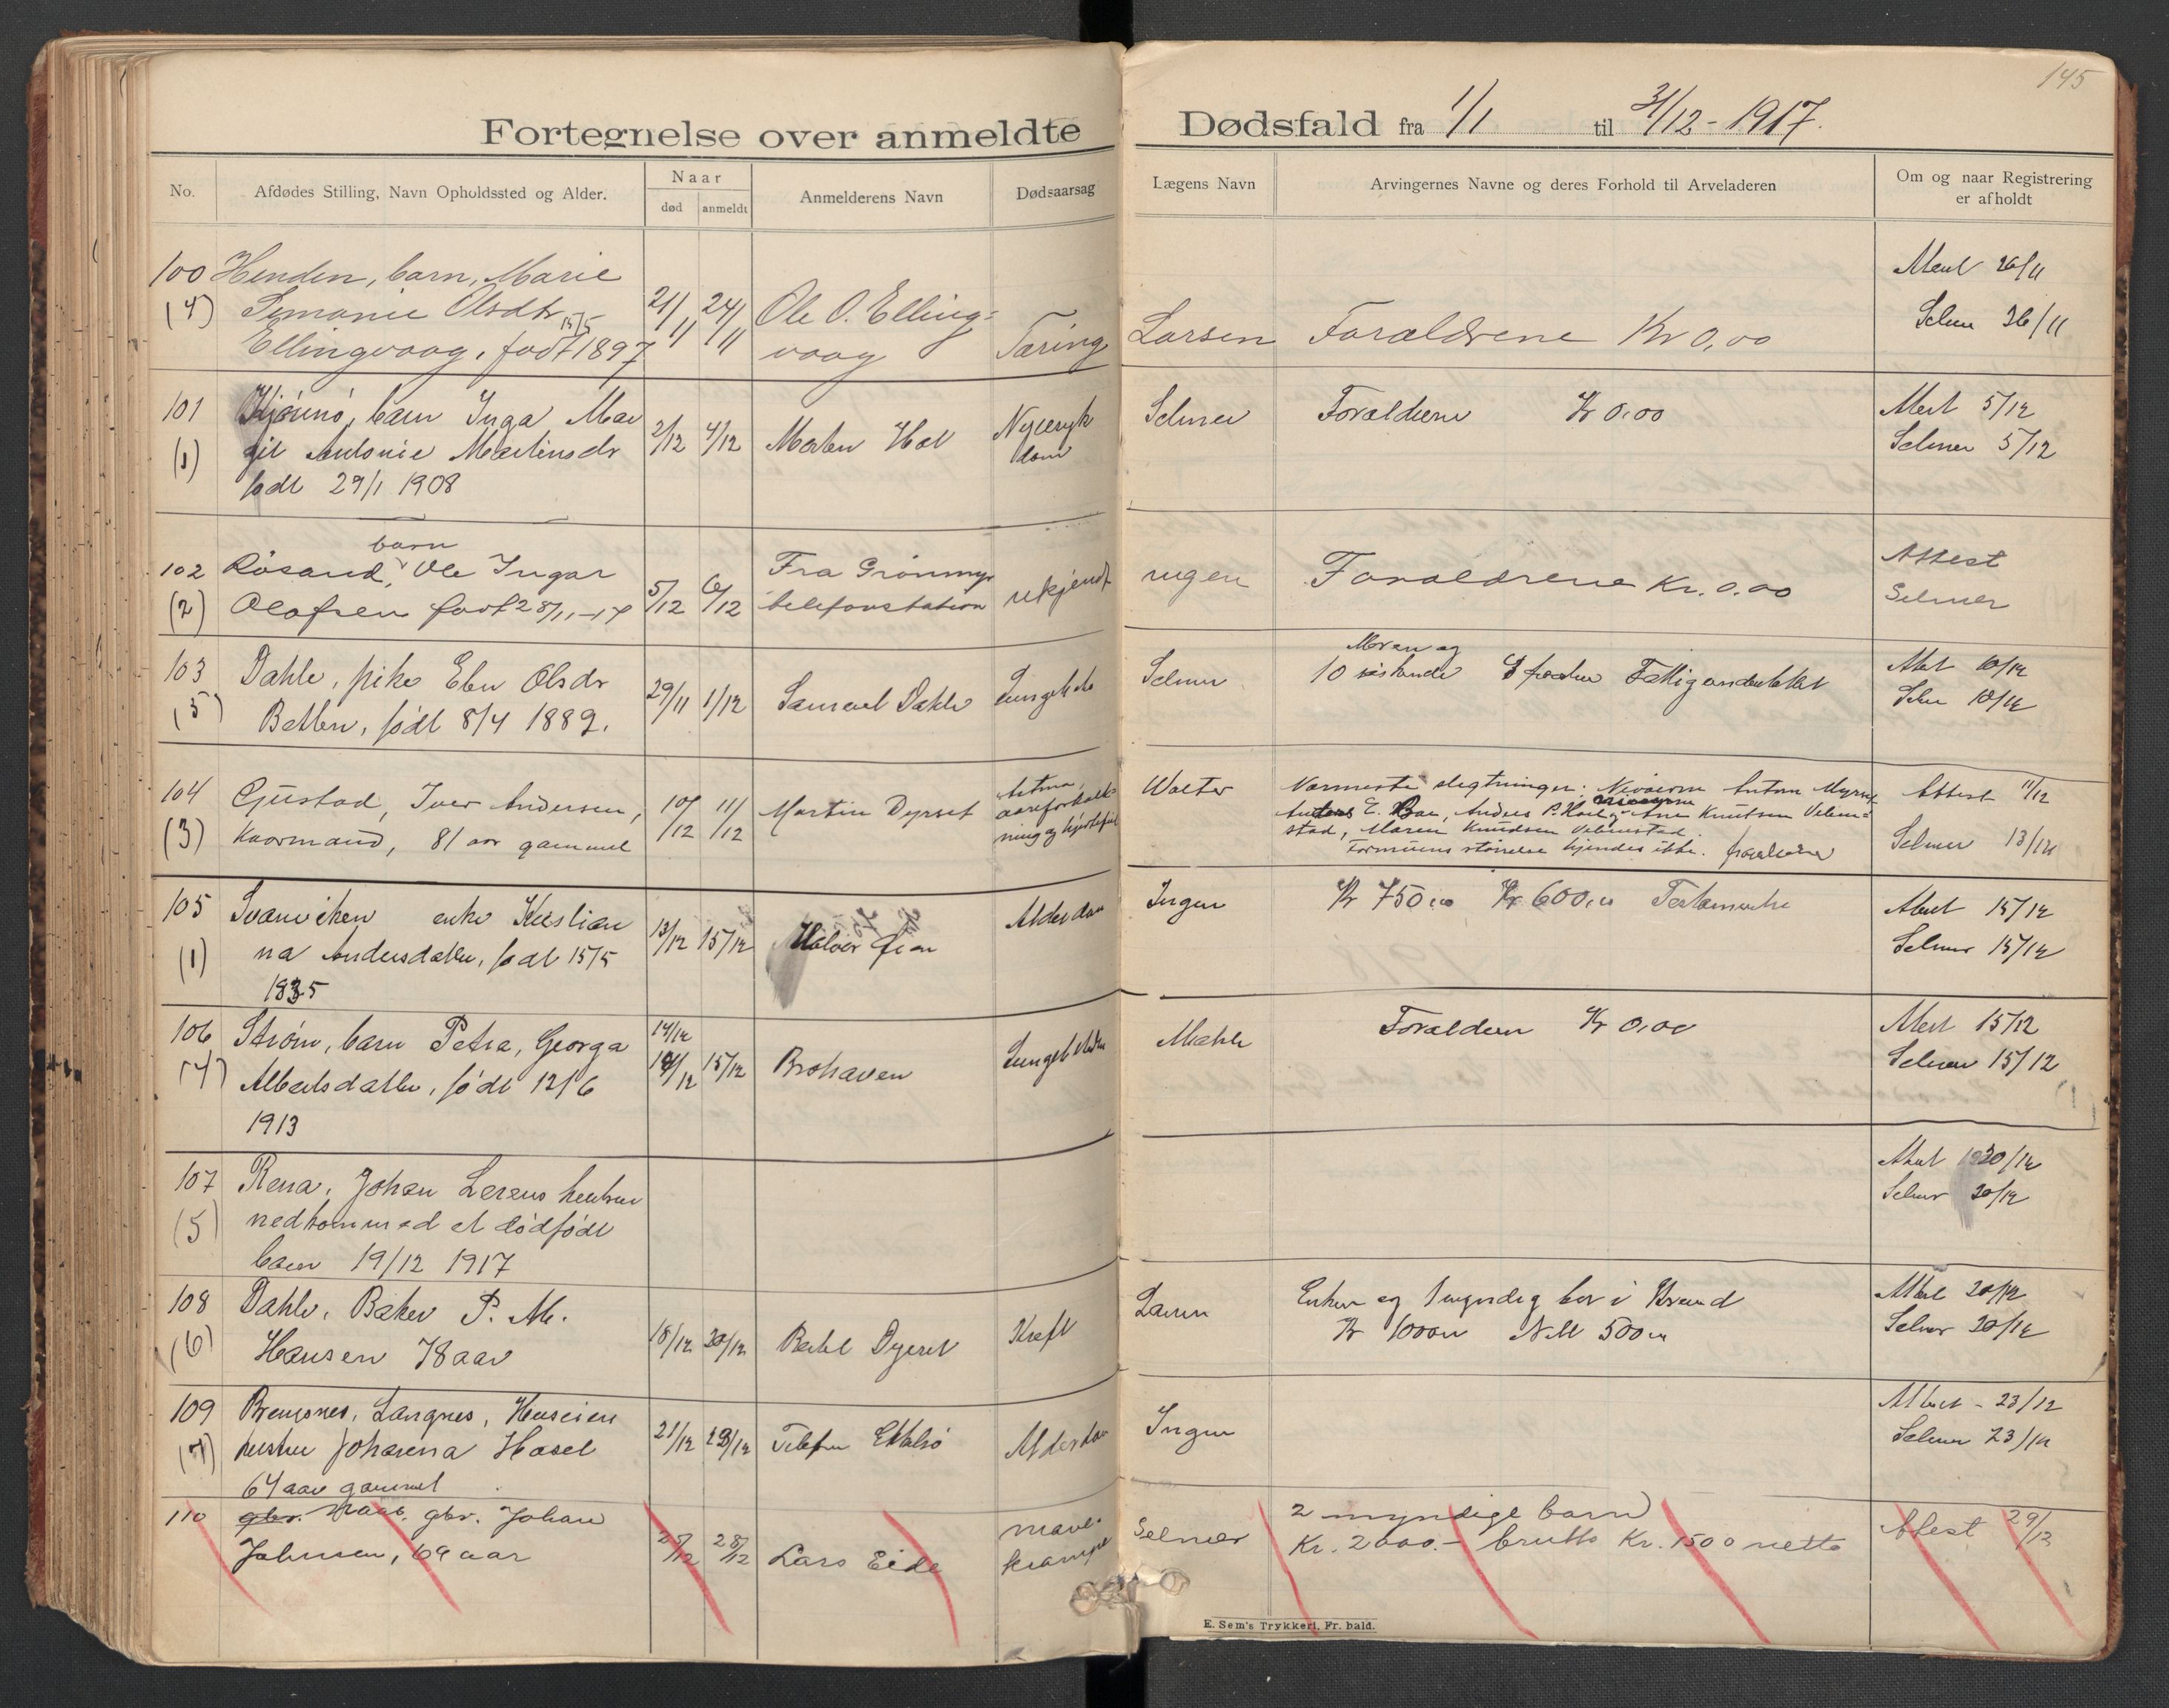 145
Fortegnelse over anmeldte Dødsfald fra 1/1 til 31/12-1917.
No.
Afdødes Stilling, Navn Opholdssted og Alder.
Naar
død
anmeldt
Anmelderens Navn
Dødsaarsag
Lægens Navn
Arvingernes Navne og deres Forhold til Arveladeren
Om og naar Registrering
er afholdt
100 Henden, barn, Marie
(4) Olsdtr 15/5
Ellingvaag, født 1897
21/11
24/11
Ole O. Elling-
vaag
Tæring
Larsen
Forældrene Kr 0,00
Attest 26/11
Selmer 26/11
101 barn Inga Mar
(1) git Antonie Martinsdr
født 29/1 1908
2/12
4/12
Morten Hol
Nyresyk
dom
Selmer
Forældrene Kr 0,00
Attest 5/12
Selmer 5/12
barn
102 Røsand, Ole Ingar
(2) Olafsen født 28/11-17
5/12
6/12
Fra Grønmyr
telefonstation
ukjendt
ingen
Forældrene Kr. 0.00
Attest
Selmer
103 Dahle, pike Olsdr
(5) Batten, født 8/4 1882.
29/11
1/12
Samuel Dahle
Selmer
Moren og
10 søskende
Attest 10/12
Selmer 10/12
104 Gjustad, Iver Andersen,
(3) Kaarmand, 81 aar gammel
10/12
11/12
Martin Dyrset
Astma,
aareforkalk-
ning og hjertefeil
Walter
Nærmeste slegtninger: Anton
Knutsen
stad, Maren Knudsen
Formuens størrelse kjendes ikke.
Attest 11/12
Selmer 13/12
105 Svanviken enke Kristian
(1) na Andersdatter, født 15/5
1835
13/12
15/12
Halvor
Alderdom
Ingen
Kr 750,00 Kr 600,00 Testamente
Attest 15/12
Selmer 15/12
106 Strøm, barn Petra, Georga
(4) Albertsdatter, født 12/6
1913
14/12
14/12
15/12
Brohaven
Mæhle
Forældrene Kr 0,00
Attest 15/12
Selmer 15/12
107 Rena, Johan hustru
(5) nedkommed et dødfødt
barn 19/12 1917
Attest 20/12
Selmer 20/12
108 Dahle, Baker P. M.
(6) Hansen 78 aar
18/12
20/12
Dyrset
Kreft
Larsen
Enken og 1 myndig
Kr 1000,00 Nett 500,00
Attest 20/12
Selmer 20/12
109 Bremsnes, Langnes,
(7) hustru Johanna Hasel
64 aar gammel
21/12
23/12
Telefon
Alderdom
Ingen
Attest - 23/12
Selmer 23/12
110 gbr. gbr. Johan
Johnsen, 69 aar
28/12
Lars Eide
mave-
krampe
Selmer
2 myndige barn
Kr. 2000.- brutto Kr. 1500 netto
Attest 29/12
E. Sem's Trykkeri, Fr. hald.